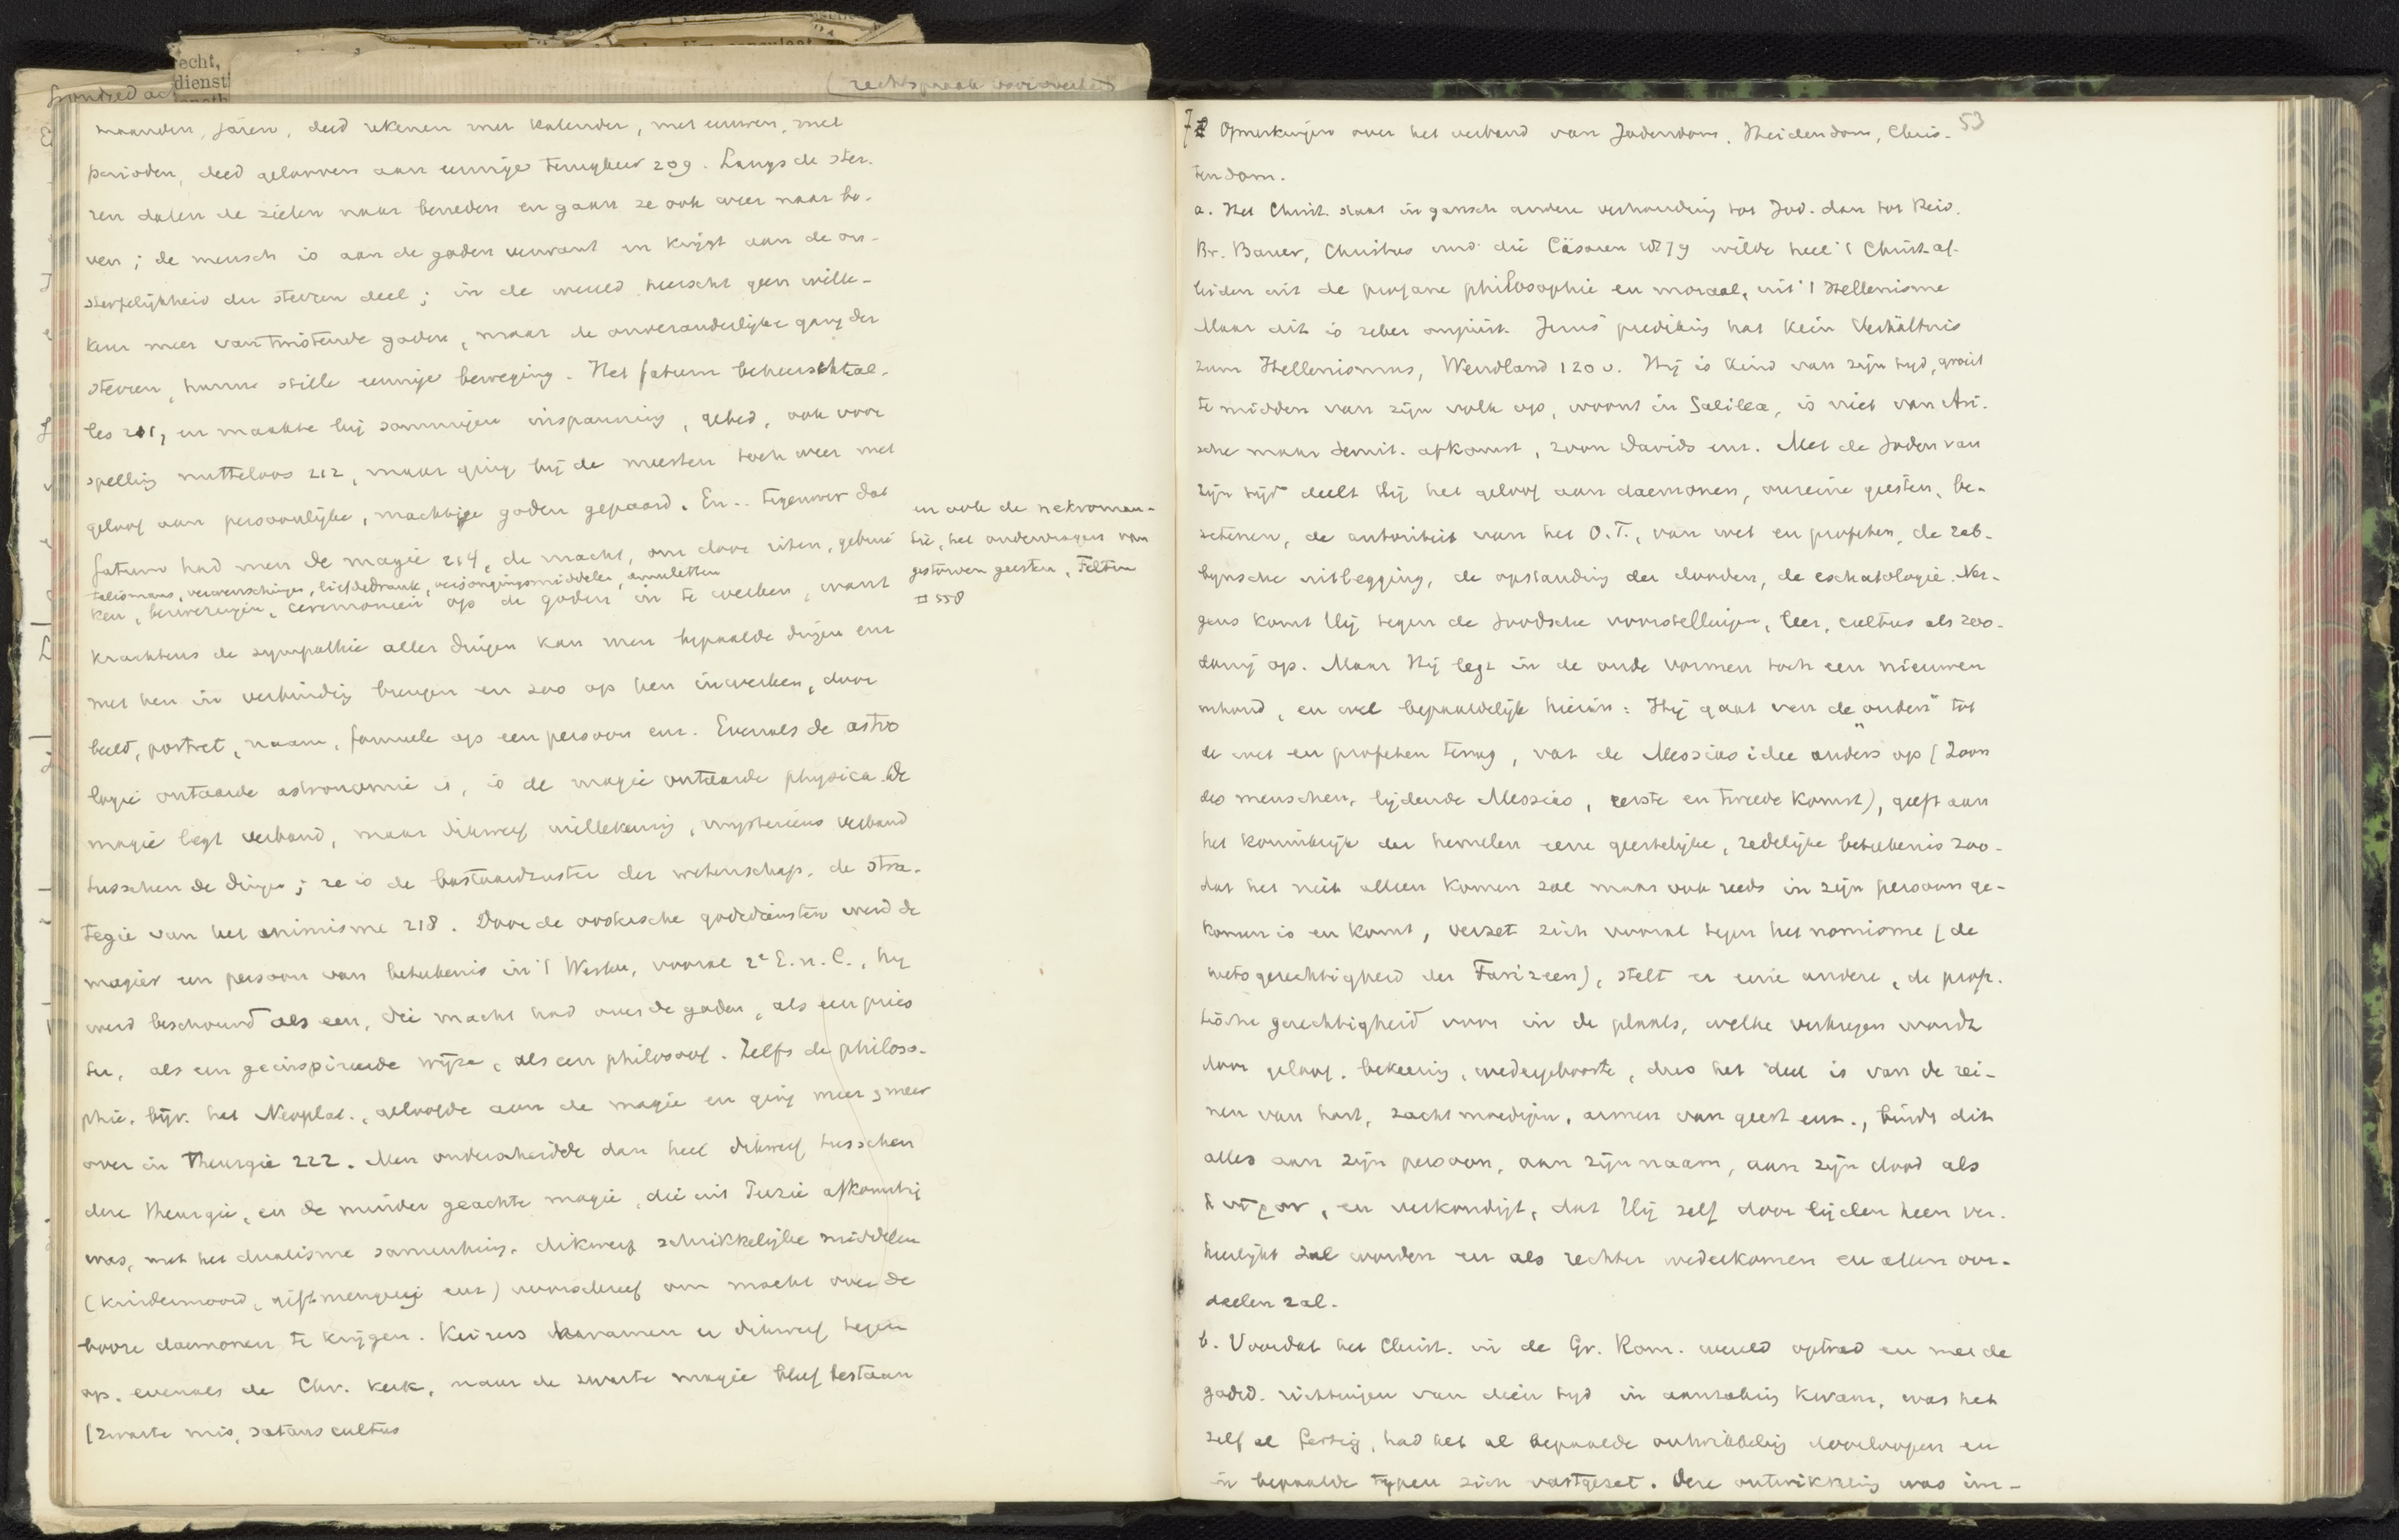 echt,
dienst
(rechtspraak
maanden, jaren, deed rekenen met kalender, met eeuwen, met
perioden, deed gelooven aan eeuwige terugkeer 209. Langs de ster-
ren dalen de zielen naar beneden en gaan ze ook weer naar bo-
ven; de mensch is aan de goden verwant en krijgt aan de on-
sterfelijkheid der sterren deel; in de wereld heerscht geen wille-
keur meer van twistende goden, maar de onveranderlijke gang der
sterren, hunne stille eeuwige beweging. Het fatum beheerscht al-
les 211, en maakte bij sommigen inspanning, gebed, ook voor
spelling nutteloos 212, maar ging bij de meesten toch weer met
geloof aan persoonlijke, machtige goden gepaard. En .. tegenover dat
fatum had men de magie 214, de macht, om door riten, gebrui
talismans, verwenschingen, liefdedrank, verjongingsmiddelen, amuletten
ken, bezweringen, ceremonieën op de goden in te werken, want
krachtens de sympathie aller dingen kan men bepaalde dingen enz
met hen in verbinding brengen en zoo op hen inwerken, door
beeld, portret, naam, formule op een persoon enz. Evenals de astro
logie ontaarde astronomie is, is de magie ontaarde physica. De
magie legt verband, maar dikwerf willekeurig, mysterieus verband
tusschen de dingen; ze is de bastaardzuster der wetenschap, de stra-
tegie van het animisme 218. Door de oostersche godsdiensten werd de
magiër een persoon van beteekenis in 't Westen, vooral 2e E. n. C., hy
werd beschouwd als een, die macht had over de goden, als een pries
ter, als een geïnspireerde wijze, als een philosoof. Zelfs de philoso-
phie, bijv. het Neoplat., geloofde aan de magie en ging meer & meer
over in Theurgie 222. Men onderscheidde dan heel dikwerf tusschen
deze theurgie, en de minder geachte magie, die uit Perzië afkomstig
was, met het dualisme samenhing, dikwerf schrikkelijke middelen
(kindermoord, giftmengerij enz) voorschreef om macht over de
booze daemonen te krijgen. Keizers kwamen er dikwerf tegen
op, evenals de Chr. kerk, maar de zwarte magie bleef bestaan
(zwarte mis, satans cultus
en ook de nekroman-
tie, het ondervragen van
gestorven geesten, Felten
II 558
53
7 Opmerkingen over het verband van Jodendom, Heidendom, Chris-
tendom.
a. Het Christ. staat in gansch andere verhouding tot Jod. dan tot Heid.
Br. Bauer, Christus und die Cäsaren 1879 wilde heel 't Christ. af-
leiden uit de profane philosophie en moraal, uit 't Hellenisme
Maar dit is zeker onjuist. Jezus' prediking hat kein Verhältnis
zum Hellenismus, Wendland 120 v. Hij is kind van zijn tijd, groeit
te midden van zijn volk op, woont in Galilea, is niet van Ari-
sche maar Semit. afkomst, zoon Davids enz. Met de Joden van
zijn tijd deelt Hij het geloof aan daemonen, onreine geesten, be-
zetenen, de autoriteit van het O.T., van wet en profeten, de rab-
bijnsche uitlegging, de opstanding der dooden, de eschatologie. Ner-
gens komt Hij tegen de Joodsche voorstellingen, leer, cultus als zoo-
danig op. Maar Hij legt in de oude vormen toch een nieuwen
inhoud, en wel bepaaldelijk hierin: Hij gaat van de "ouden" tot
de wet en profeten terug, vat de Messias idee anders op (Zoon
des menschen, lijdende Messias, eerste en tweede komst), geeft aan
het koninkrijk der hemelen eene geestelijke, zedelijke beteekenis zoo-
dat het niet alleen komen zal maar ook reeds in zijn persoon ge-
komen is en komt, verzet zich vooral tegen het nomisme (de
wetsgerechtigheid der Farizeen), stelt er eene andere, de prof-
tische gerechtigheid voor in de plaats, welke verkregen wordt
door geloof, bekeering, wedergeboorte, dus het deel is van de rei-
nen van hart, zachtmoedigen, armen van geest enz., bindt dit
alles aan zijn persoon, aan zijn naam, aan zijn dood als
λυτρον, en verkondigt, dat Hij zelf door lijden heen ver-
heerlijkt zal worden en als rechter wederkomen en allen oor-
deelen zal.
b. Voordat het Christ. in de Gr. Rom. wereld optrad en met de
godsd. richtingen van dien tyd in aanraking kwam, was het
zelf al fertig, had het al bepaalde ontwikkeling doorloopen en
in bepaalde typen zich vastgezet. Deze ontwikkeling was im-